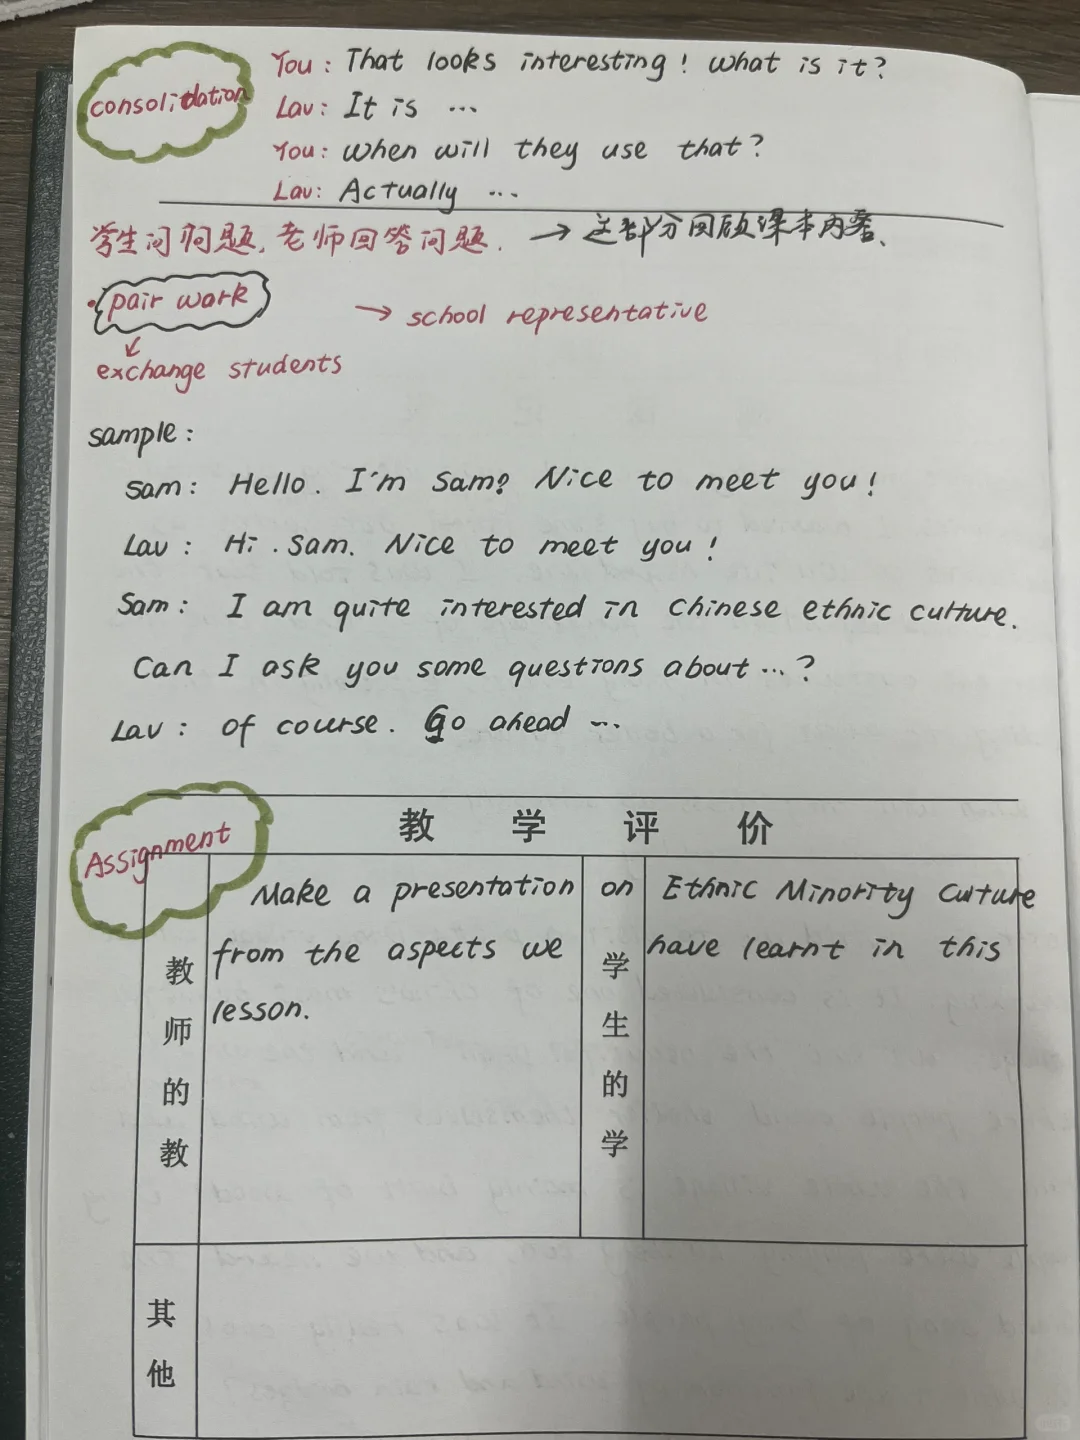 consolidation
You: That looks interesting! What is it?
Lav: It is ...
You: When will they use that?
Lav: Actually ...
学生问问题, 老师回答问题. → 这部分回顾课本内容、
· pair work → school representative
exchange students
sample:
Sam: Hello. I'm Sam. Nice to meet you!
Lav: Hi. Sam. Nice to meet you!
Sam: I am quite interested in Chinese ethnic culture.
Can I ask you some questions about ...?
Lav: Of course. Go ahead ...
Assignment
教学评价
Make a presentation on Ethnic Minority Culture
from the aspects we have learnt in this
lesson.
教师的教
学生的学
其他